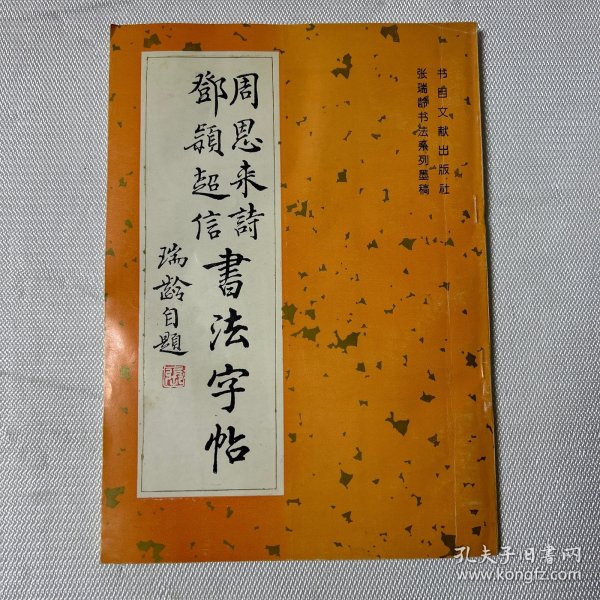 书目文献出版社
张瑞龄书法系列墨稿
周恩来詩
鄧穎超信
書法字帖
瑞齡自題
孔夫子旧書网
www.kongfz.com